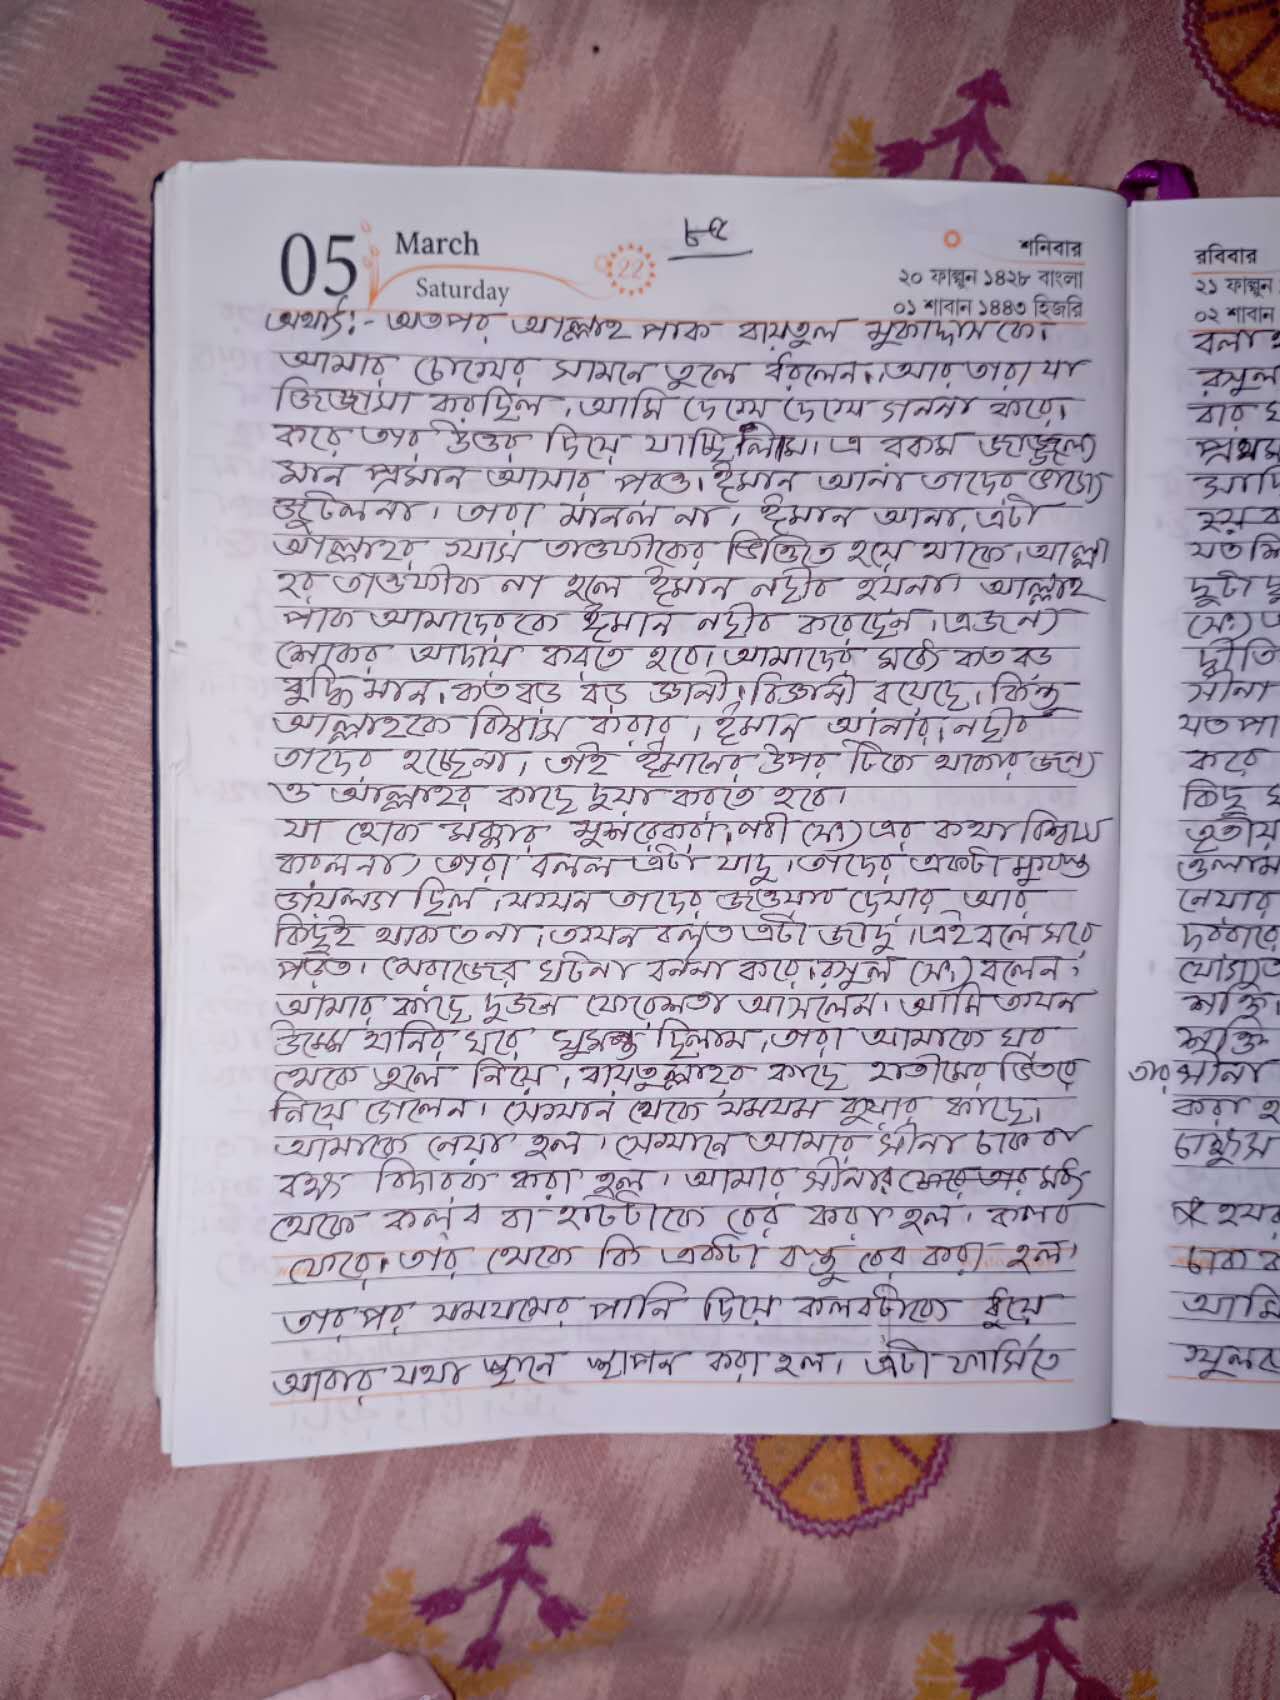 05
March
Saturday
22
৮৫
শনিবার
২০ ফাল্গুন ১৪২৮ বাংলা
০১ শাবান ১৪৪৩ হিজরি
অথাৎ:- অতপর আল্লাহ পাক বায়তুল মুকাদ্দাসকে।
আমার চোখের সামনে তুলে ধরলেন। আর তারা যা
জিজ্ঞাসা করছিল, আমি দেখে দেখে গননা করে।
করে তার উত্তর দিয়ে যাচ্ছিলাম। এ রকম জাজ্জ্বল্য
মান প্রমান আসার পরও। ঈমান আনা তাদের ভাগ্যে
জুটলনা। তারা মানল না। ঈমান আনা, এটা
আল্লাহর খাস তাওফীকের ভিত্তিতে হয়ে থাকে। আল্লা
হর তাওফীক না হলে ঈমান নছীব হয়না। আল্লাহ
পাক আমাদেরকে ঈমান নছীব করেছেন। এজন্য
শোকর আদায় করতে হবে। আমাদের মধ্যে কত বড়
বুদ্ধিমান, কত বড় বড় জ্ঞানী, বিজ্ঞানী রয়েছে। কিন্তু
আল্লাহকে বিশ্বাস করার, ঈমান আনার, নছীব
তাদের হচ্ছেনা, তাই ঈমানের উপর টিকে থাকার জন্য
ও আল্লাহর কাছে দুয়া করতে হবে।
যা হোক মক্কার মুশরেকরা, নবী (সঃ) এর কথা বিশ্বাস
করলনা, তারা বলল এটা যাদু। তাদের একটা মুখস্ত
ডায়লগ ছিল, যখন তাদের জওয়াব দেয়ার আর
কিছুই থাকতনা, তখন বলত এটা জাদু। এই বলে সরে
পড়ত। মেরাজের ঘটনা বর্ননা করে, রসুল (সঃ) বলেন,
আমার কাছে দুজন ফেরেশতা আসলেন। আমি তখন
উম্মে হানির ঘরে ঘুমন্ত ছিলাম, তারা আমাকে ঘর
থেকে তুলে নিয়ে, বায়তুল্লাহর কাছে হাতীমের ভিতরে
নিয়ে গেলেন। সেখান থেকে যমযম কুয়ার কাছে।
আমাকে নেয়া হল। সেখানে আমার সীনা চাক বা
বক্ষ বিদারন করা হল। আমার সীনার তার মধ্য
থেকে কলব বা হার্টটাকে বের করা হল। কলব
ফেরে, তার থেকে কি একটা বস্তু বের করা হল।
তারপর যমযমের পানি দিয়ে কলবটাকে ধুয়ে
আবার যথা স্থানে স্থাপন করা হল। এটা ফার্সিতে
রবিবার
২১ ফাল্গুন
০২ শাবান
বলা
রসুল
বার
প্রথম
দুটা
(সঃ)
সীনা
যত পা
করে
কিছু
তৃতীয়
নেয়ার
দরবারে
শক্তি
শক্তি
তার সীনা
করা হ
চাক
আমি